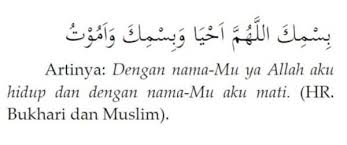 بِسْمِكَ اللَّهُمَّ اَحْيَا وَبِسْمِكَ وَاَمُوْتُ
Artinya: Dengan nama-Mu ya Allah aku
hidup dan dengan nama-Mu aku mati. (HR.
Bukhari dan Muslim).